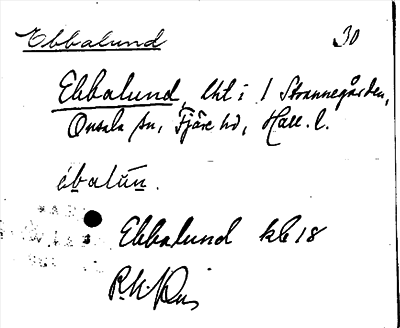 Ebbalund 30
Ebbalund, lht i 1 Strannegården,
Onsala sn, Fjäre hd, Hall. l.
èbalun̄.
Ebbalund kbl 18